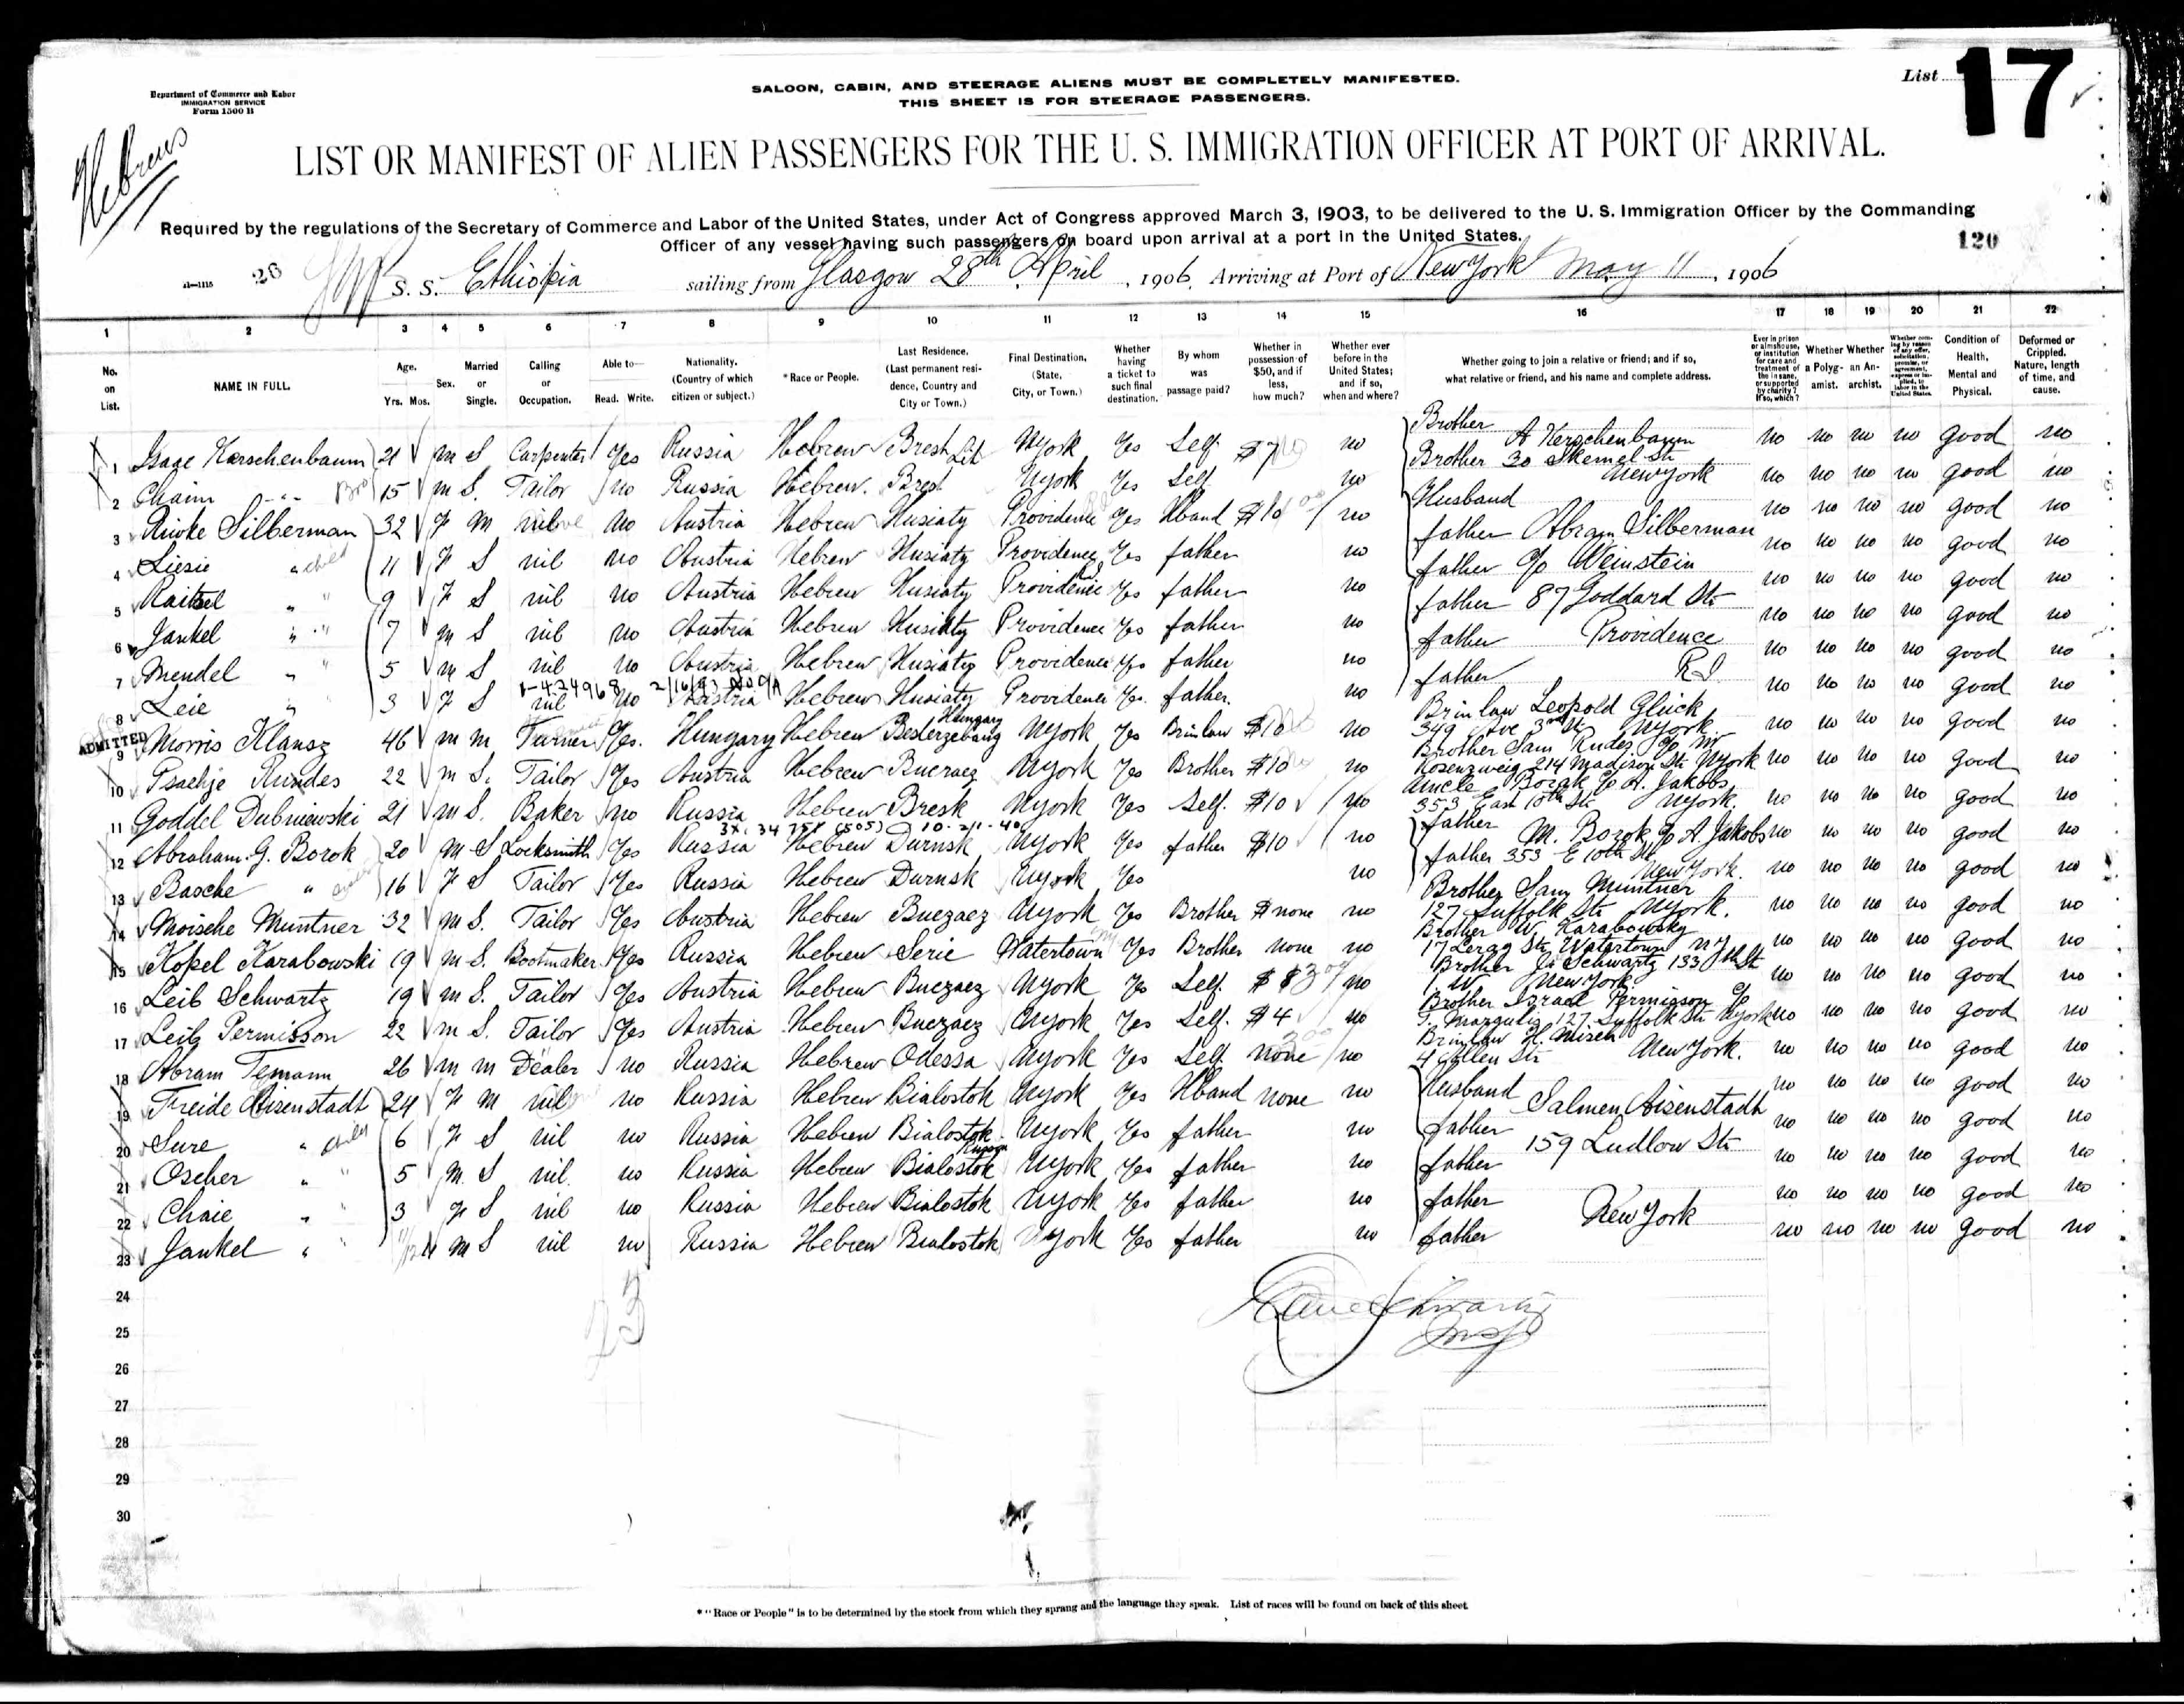 Department of Commerce and Labor
IMMIGRATION SERVICE
Form 1500 B
SALOON, CABIN, AND STEERAGE ALIENS MUST BE COMPLETELY MANIFESTED.
THIS SHEET IS FOR STEERAGE PASSENGERS.
List 17
Hebrews
LIST OR MANIFEST OF ALIEN PASSENGERS FOR THE U. S. IMMIGRATION OFFICER AT PORT OF ARRIVAL.
Required by the regulations of the Secretary of Commerce and Labor of the United States, under Act of Congress approved March 3, 1903, to be delivered to the U. S. Immigration Officer by the Commanding
Officer of any vessel having such passengers on board upon arrival at a port in the United States.
120
26 S. S. Ethiopia sailing from Glasgow 28th April, 1906, Arriving at Port of New York May 11, 1906
1 2 3 4 5 6 7 8 9 10 11 12 13 14 15 16 17 18 19 20 21 22
No. on List.
NAME IN FULL.
Age. Yrs. Mos.
Sex.
Married or Single.
Calling or Occupation.
Able to— Read. Write.
Nationality. (Country of which citizen or subject.)
*Race or People.
Last Residence. (Last permanent residence, Country and City or Town.)
Final Destination, (State, City, or Town.)
Whether having a ticket to such final destination.
By whom was passage paid?
Whether in possession of $50, and if less, how much?
Whether ever before in the United States; and if so, when and where?
Whether going to join a relative or friend; and if so, what relative or friend, and his name and complete address.
Ever in prison or almshouse, or institution for care and treatment of the insane, or supported by charity? If so, which?
Whether a Polygamist.
Whether an Anarchist.
Whether coming by reason of any offer, solicitation, promise, or agreement, express or implied, to labor in the United States.
Condition of Health, Mental and Physical.
Deformed or Crippled. Nature, length of time, and cause.
1 Isaac Kerschenbaum 21 m S Carpenter Yes Russia Hebrew Brest Lit NYork Yes Self $7 no Brother A Kerschenbaum no no no no good no
2 Chaim " Bro 15 m S. Tailor no Russia Hebrew. Brest NYork Yes Self no Brother 30 St New York no no no no good no
3 Riwke Silberman 32 F M nil no Austria Hebrew Husiaty Providence Yes Hband $10 no Husband no no no no good no
4 Liesie " child 11 F S nil no Austria Hebrew Husiaty Providence Yes father no father Abram Silberman no no no no good no
5 Raitzel " " 9 F S nil no Austria Hebrew Husiaty Providence Yes father no father c/o Weinstein no no no no good no
6 Jankel " " 7 m S nil no Austria Hebrew Husiaty Providence Yes father no father 87 Goddard Str no no no no good no
7 Mendel " " 5 m S nil no Austria Hebrew Husiaty Providence Yes father no father Providence no no no no good no
1-424968 2/16/43
8 Leie " 3 F S nil no Austria Hebrew Husiaty Providence Yes. father. no father RI no no no no good no
ADMITTED
9 Morris Klausz 46 m m Turner Yes. Hungary Hebrew Hungary NYork Yes Brinlaw $10 no Brinlaw Leopold Gluck 349 3rd St NYork no no no no good no
10 22 m S. Tailor Yes Austria Hebrew Buczacz NYork Yes Brother $10 no Brother Sam Rudes c/o Mr Rosenzweig 214 Madison Str NYork no no no no good no
11 Goddel Dubniewski 21 m S. Baker no Russia Hebrew Bresk NYork Yes Self. $10 no Uncle Borok c/o A. Jakobs 353 East 10th Str NYork. no no no no good no
12 Abraham G. Borok 20 m S Locksmith Yes Russia Hebrew Durnsk NYork Yes father $10 no father M. Borok c/o A Jakobs no no no no good no
13 Basche " 16 F S Tailor Yes Russia Hebrew Durnsk NYork Yes no father 353 E 10th St New York. no no no no good no
14 Moische Muntner 32 m S. Tailor Yes Austria Hebrew Buczacz NYork Yes Brother $ none no Brother Sam Muntner 127 Suffolk Str NYork. no no no no good no
15 Kopel Karabowski 19 m S. Bootmaker Yes Russia Hebrew Serie Watertown Yes Brother none no Brother W. Karabowsky 17 Str Watertown NY no no no no good no
16 Leib Schwartz 19 m S. Tailor Yes Austria Hebrew Buczacz NYork Yes Self. $ no Brother Schwartz 133 St New York. no no no no good no
17 Leib Permisson 22 m S. Tailor Yes Austria Hebrew Buczacz NYork Yes Self. $4 no Brother Israel Permisson c/o Margulis 127 Suffolk Str NYork no no no no good no
18 Abram Temann 26 m m Dealer no Russia Hebrew Odessa NYork Yes Self none no Brinlaw H. Misen 4 Allen Str New York. no no no no good no
19 Freide Aisenstadt 24 F M nil no Russia Hebrew Bialostok NYork Yes Hband none no Husband Salmen Aisenstadt no no no no good no
20 Sure " child 6 F S nil no Russia Hebrew Bialostok NYork Yes father no father 159 Ludlow Str no no no no good no
21 Oscher " " 5 M. S nil. no Russia Hebrew Bialostok Russia NYork Yes father no father no no no no good no
22 Chaie " " 3 F S nil no Russia Hebrew Bialostok NYork Yes father no father New York no no no no good no
23 Jankel " " m S nil no Russia Hebrew Bialostok NYork Yes father no father no no no no good no
24
25
26
27
28
29
30
23
Schwartz
Insp
* "Race or People" is to be determined by the stock from which they sprang and the language they speak. List of races will be found on back of this sheet.